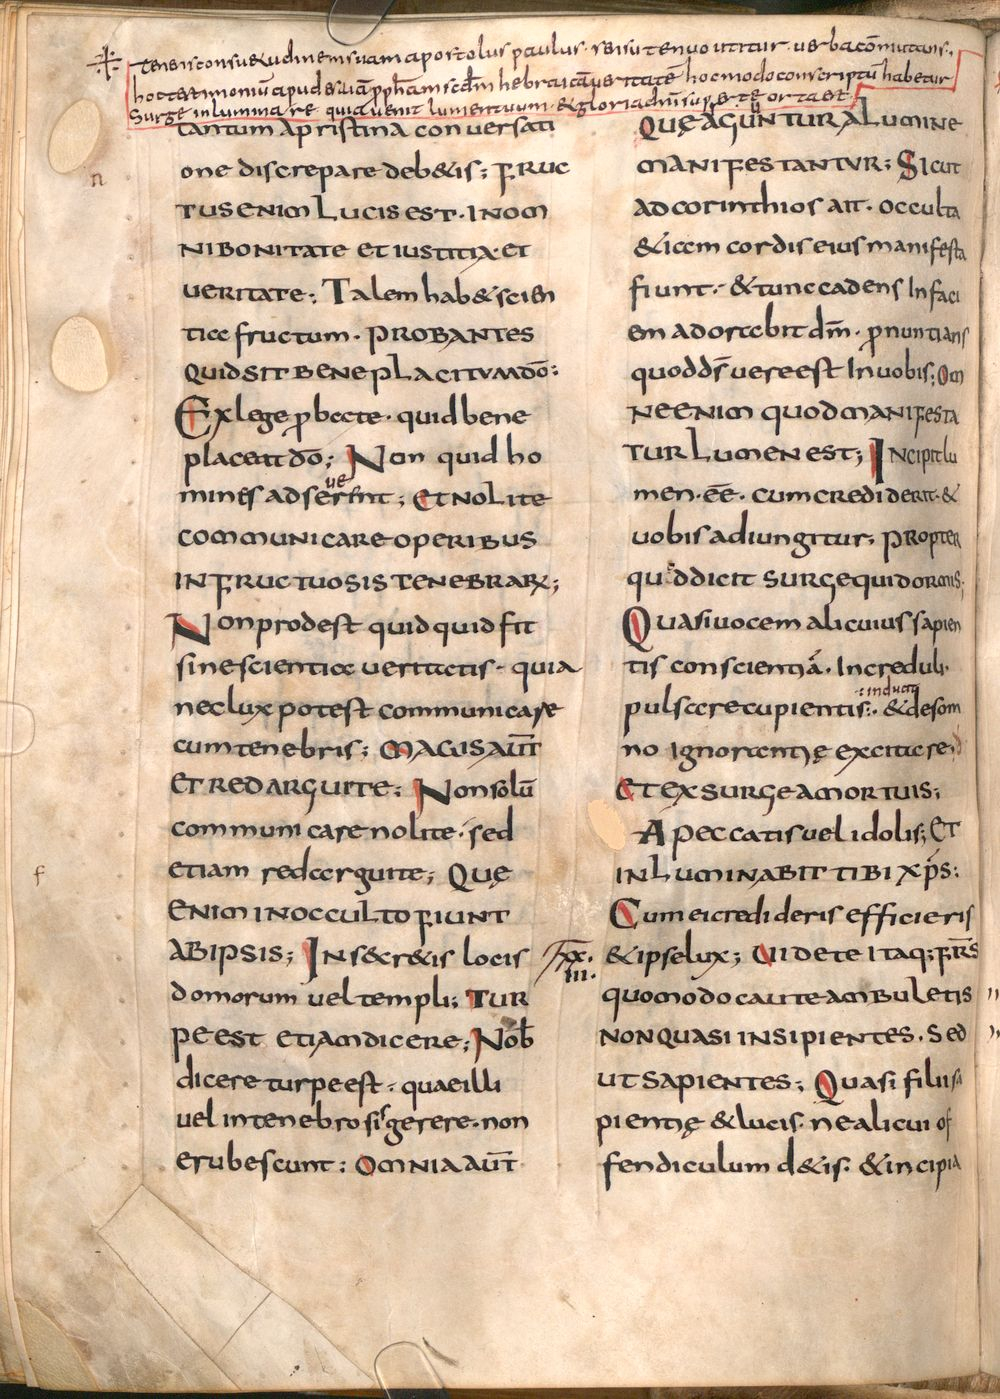 tenens consu&udinem suam apostolus paulus · uerba cōmutans ·
hoc testimoniū apud esaiā pph̄am scdm̄ hebraicā ueritatē hoc modo conscriptū habetur
Surge inluminare quia uenit lumen tuum · & gloria dn̄i sup te orta est
tantum a pristina conuersati
one discrepare deb&is; FRUC
TUS ENIM LUCIS EST · IN OM
NI BONITATE ET IUSTITIA · ET
UERITATE; Talem hab& scien
tiae fructum · PROBANTES
QUID SIT BENEPLACITUM DŌ:
Ex lege ꝓbate · quid bene
placeat dō; Non quid ho
mines adserue rint; ET NOLITE
COMMUNICARE OPERIBUS
INFRUCTUOSIS TENEBRARꝜ;
Non prodest quidquid fit
sine scientia ueritatis · quia
nec lux potest communicare
cum tenebris; MAGIS AŪT
ET REDARGUITE: Non solū
communicare nolite · sed
etiam redarguite; QUĘ
ENIM IN OCCULTO FIUNT
AB IPSIS; In secr&is locis
domorum uel templi; TUR
PE EST ETIAM DICERE; Nob̄
dicere turpe est · quae illi
uel in tenebrosis gerere · non
erubescunt: OMNIA AŪT
n
f
QUĘ AGUUNTUR A LUMINE
MANIFESTANTUR; Sicut
ad corinthios ait · occulta
&iam cordis eius manifesta
fiunt · & tunc cadens in faci
em adorabit dm̄ · ꝓnuntians
quod ds̄ uere est in uobis; OM
NE ENIM QUOD MANIFESTA
TUR LUMEN EST; Incipit lu
men · eē · cum crediderit · &
uobis adiungitur; PROPTER
QUOD DICIT SURGE QUI DORMIS;
Quasi uocem alicuius sapien
tis conscientiā · increduli ·
: inducat
pulsare cupientis: · & de som
no ignorantię excitare;
ET EXSURGE A MORTUIS;
A peccatis uel idolis; ET
INLUMINABIT TIBI XP̄S:
Cum ei credideris efficieris
XX.
III.
& ipse lux; UIDETE ITAQ; FRS̄
QUOMODO CAUTE AMBULETIS
NON QUASI INSIPIENTES · SED
UT SAPIENTES; Quasi filii sa
pientię & lucis · ne alicui of
fendiculum d&is: & incipia